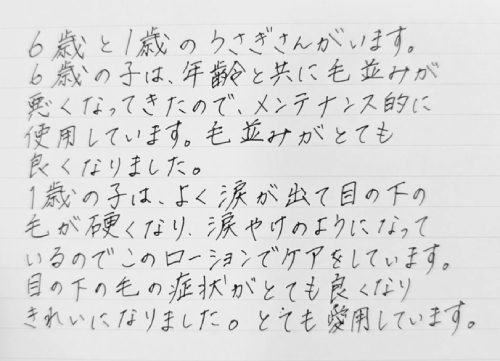 6歳と1歳のうさぎさんがいます。
6歳の子は、年齢と共に毛並みが
悪くなってきたので、メンテナンス的に
使用しています。毛並みがとても
良くなりました。
1歳の子は、よく涙が出て目の下の
毛が硬くなり、涙やけのようになって
いるのでこのローションでケアをしています。
目の下の毛の症状がとても良くなり
きれいになりました。とても愛用しています。